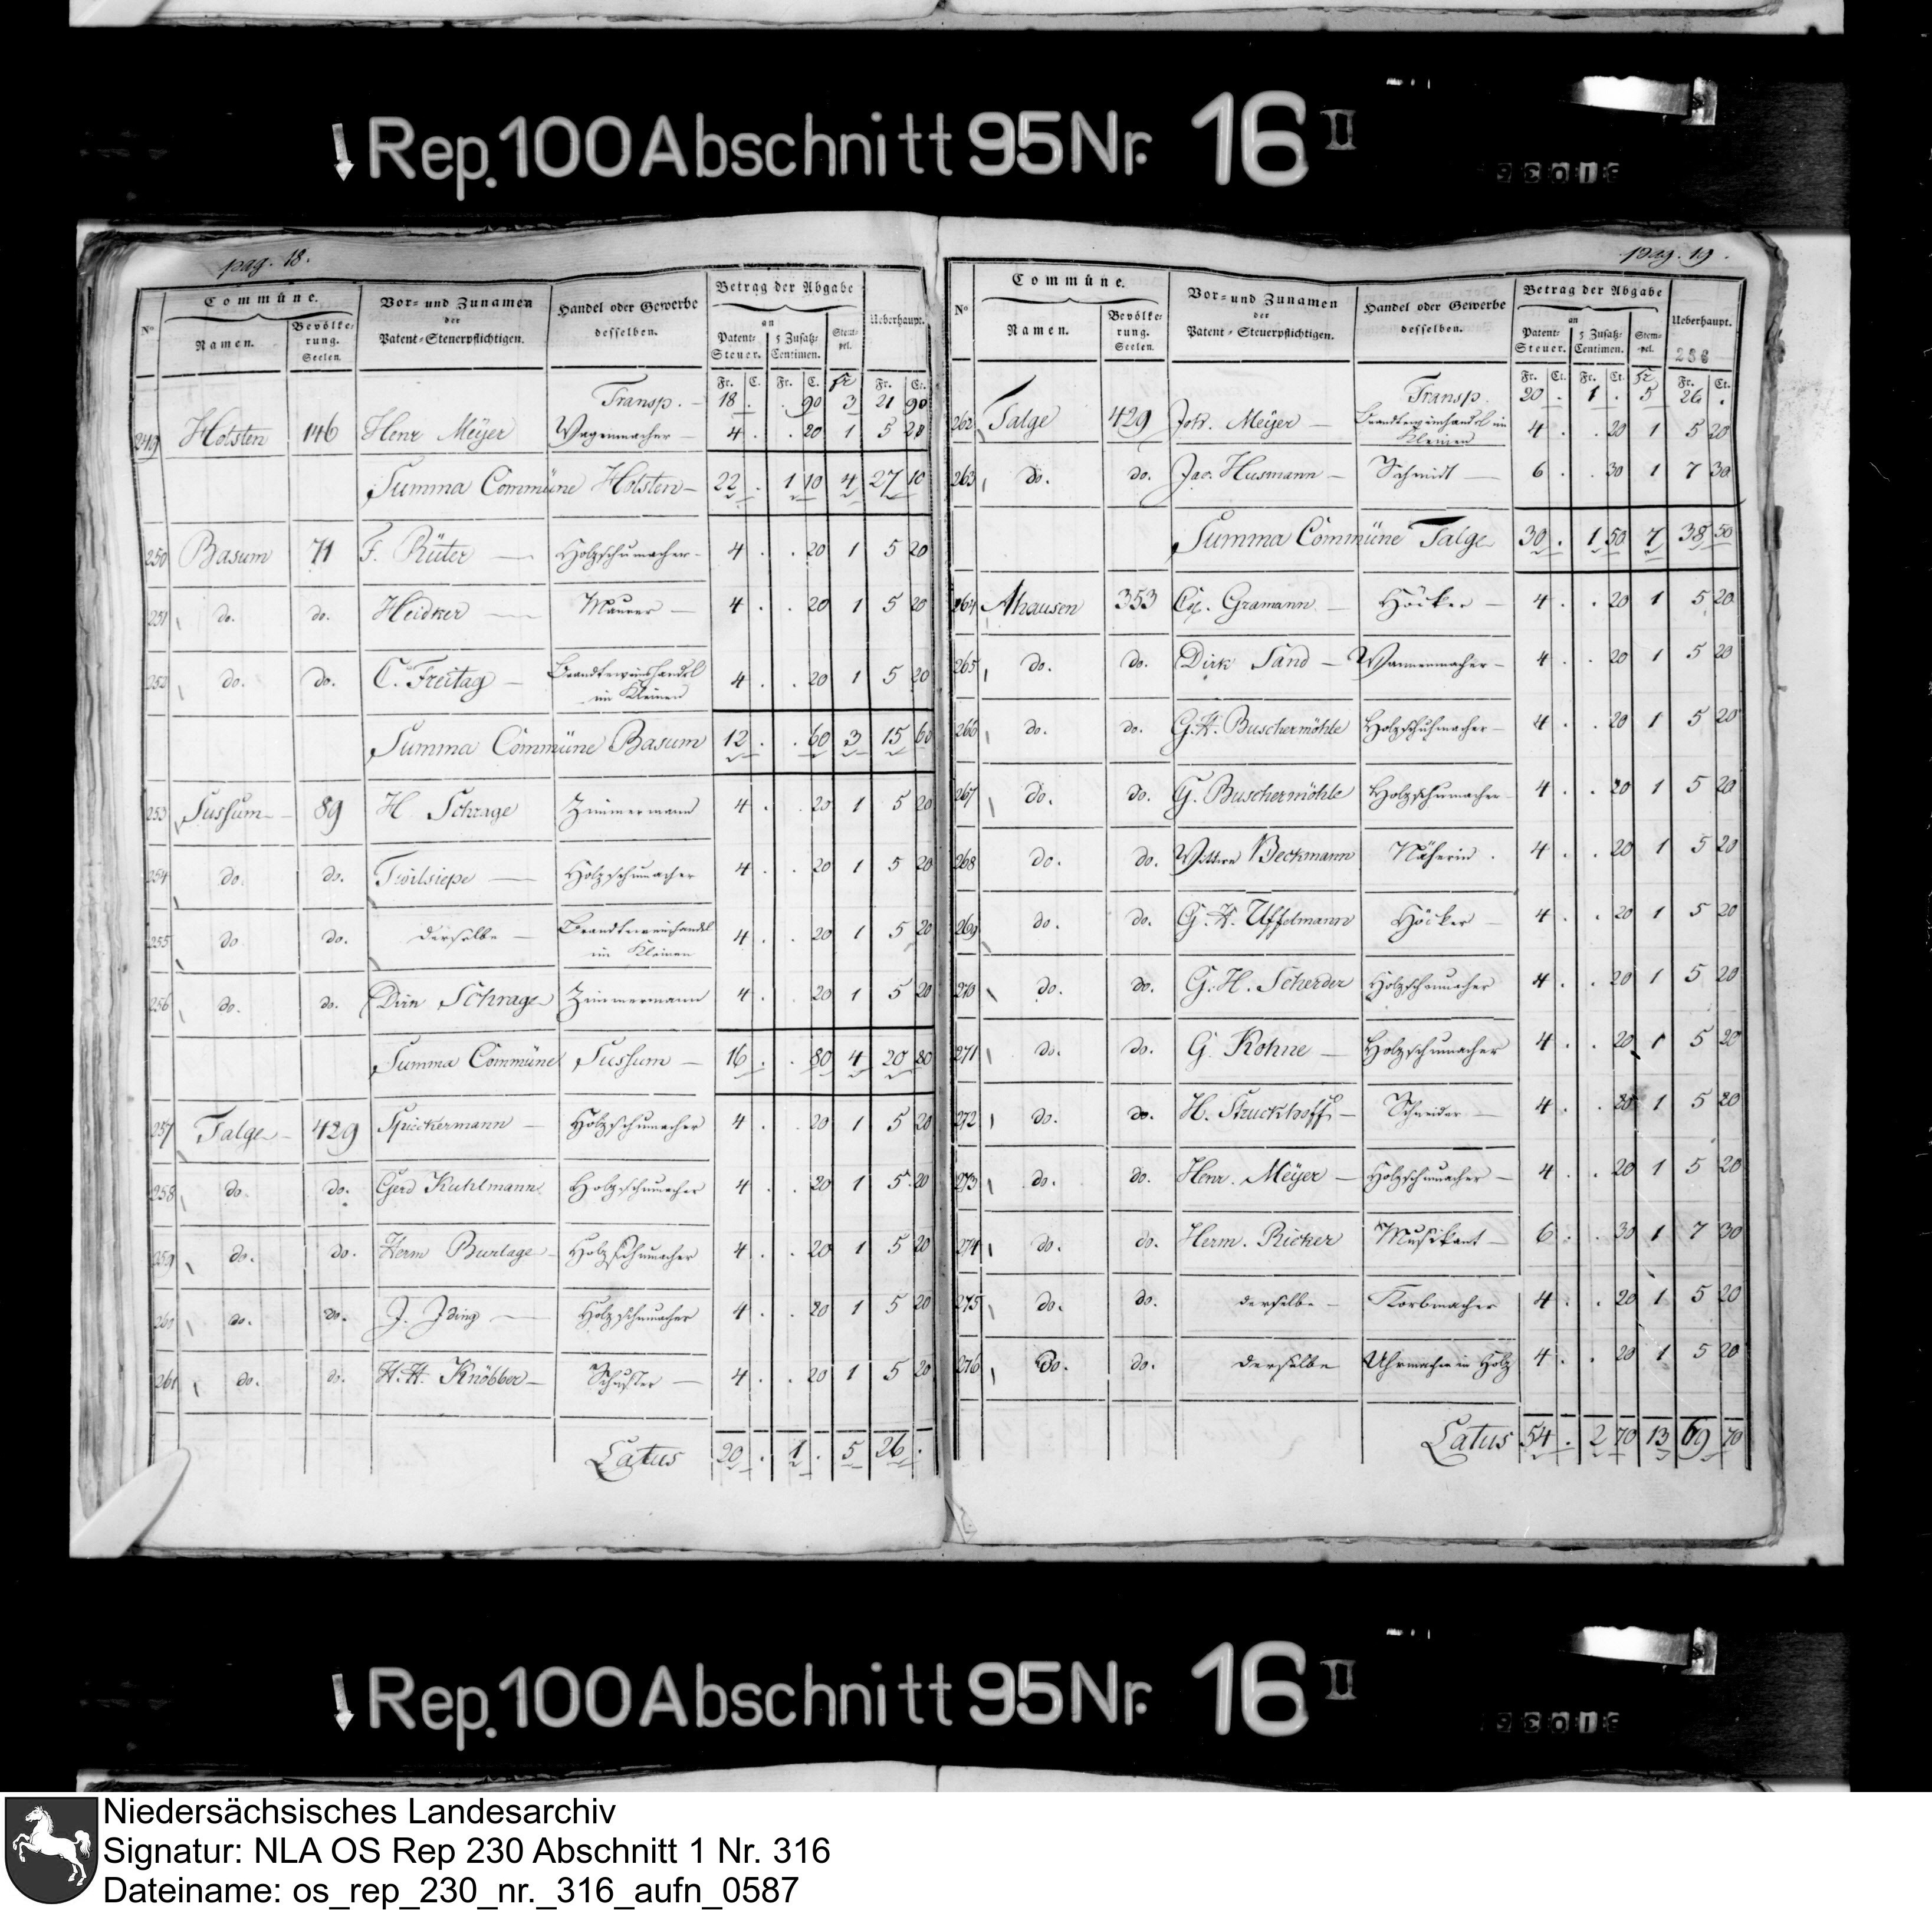 Rep. 100 Abschnitt 95 Nr. 16 II
pag. 18.
Commüne. Vor- und Zunamen der Patent-Steuerpflichtigen. Handel oder Gewerbe desselben. Betrag der Abgabe Ueberhaupt.
No Namen. Bevölkerung. Seelen. an Patent-Steuer. 5 Zusatz-Centimen. Stempel.
Fr. C. Fr. C. Fr Fr. Ct.
Transp. 18 . . 90 3 21 90
249 Holsten 146 Henr Meÿer Wagenmacher 4 . . 20 1 5 20
Summa Commüne Holsten 22 . 1 10 4 27 10
250 Basum 71 F. Rüter Holzschumacher 4 . . 20 1 5 20
251 do. do. Heidker Maurer 4 . . 20 1 5 20
252 do. do. C. Freitag Brandtweinshandel im Kleinen 4 . . 20 1 5 20
Summa Commüne Basum 12 . . 60 3 15 60
253 Sussum 89 H. Schrage Zimmermann 4 . . 20 1 5 20
254 do. do. Holzschumacher 4 . . 20 1 5 20
255 do do. derselbe Brandtweinshandel im Kleinen 4 . . 20 1 5 20
256 do. do. Dirk Schrage Zimmermann 4 . . 20 1 5 20
Summa Commüne Sussum 16 . . 80 4 20 80
257 Talge 429 Spieckermann Holzschumacher 4 . . 20 1 5 20
258 do. do. Gerd Kuhlmann Holzschumacher 4 . . 20 1 5 20
259 do. do. Herm Burlage Holzschumacher 4 . . 20 1 5 20
260 do. do. J. Iding Holzschumacher 4 . . 20 1 5 20
261 do. do. H. H. Knöbber Schuster 4 . . 20 1 5 20
Latus 20 . 1 . 5 26 .
pag. 19.
Commüne. Vor- und Zunamen der Patent-Steuerpflichtigen. Handel oder Gewerbe desselben. Betrag der Abgabe Ueberhaupt.
No Namen. Bevölkerung. Seelen. an Patent-Steuer. 5 Zusatz-Centimen. Stempel. 256
Fr. Ct. Fr. Ct. Fr Fr. Ct.
Transp. 20 . 1 . 5 26 .
262 Talge 429 Joh. Meÿer Brandtweinhandel im Kleinen 4 . . 20 1 5 20
263 do. do. Jac. Husmann Schmidt 6 . . 30 1 7 30
Summa Commüne Talge 30 . 1 50 7 38 50
264 Ahausen 353 Gramann Höcker 4 . . 20 1 5 20
265 do. do. Dirk Sand Wannenmacher 4 . . 20 1 5 20
266 do. do. G. H. Buschermöhle Holzschuhmacher 4 . . 20 1 5 20
267 do. do. G. Buschermöhle Holzschumacher 4 . . 20 1 5 20
268 do. do. Wittwe Beckmann Näherin . 4 . . 20 1 5 20
269 do. do. G. H. Uffelmann Höcker 4 . . 20 1 5 20
270 do. do. G. H. Scherder Holzschumacher 4 . . 20 1 5 20
271 do. do. G. Kohne Holzschumacher 4 . . 20 1 5 20
272 do. do. H. Struckhoff Schneider 4 . . 20 1 5 20
273 do. do. Henr. Meÿer Holzschumacher 4 . . 20 1 5 20
274 do. do. Herm. Ricker Musikant 6 . . 30 1 7 30
275 do. do. derselbe Korbmacher 4 . . 20 1 5 20
276 do. do. derselbe Uhrmacher in Holz 4 . . 20 1 5 20
Latus 54 . 2 70 13 69 70
Rep. 100 Abschnitt 95 Nr. 16 II
Niedersächsisches Landesarchiv
Signatur: NLA OS Rep 230 Abschnitt 1 Nr. 316
Dateiname: os_rep_230_nr._316_aufn_0587